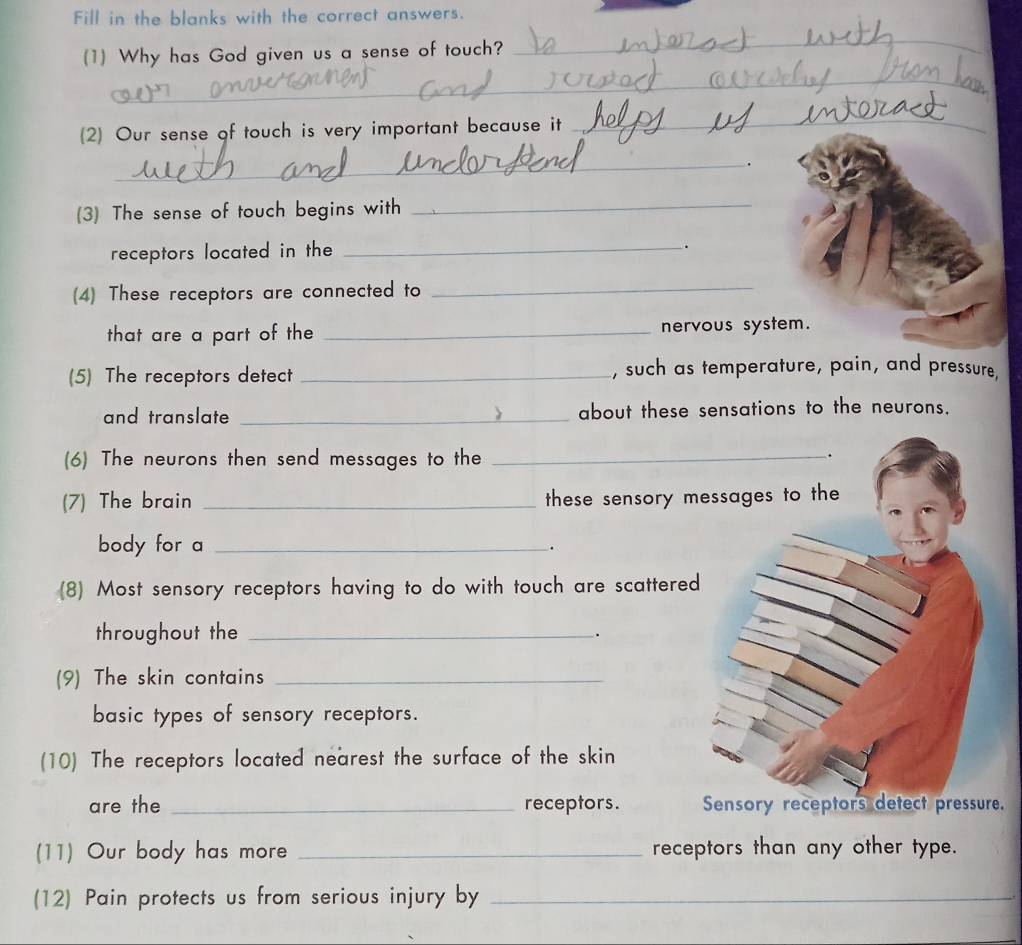 Fill in the blanks with the correct answers.
(1) Why has God given us a sense of touch? to interact with
our and from
(2) Our sense of touch is very important because it helps us interact
with and
(3) The sense of touch begins with
receptors located in the .
(4) These receptors are connected to
that are a part of the nervous system.
(5) The receptors detect , such as temperature, pain, and pressure,
and translate about these sensations to the neurons.
(6) The neurons then send messages to the .
(7) The brain these sensory messages to the
body for a .
(8) Most sensory receptors having to do with touch are scattered
throughout the .
(9) The skin contains
basic types of sensory receptors.
(10) The receptors located nearest the surface of the skin
are the receptors.
Sensory receptors detect pressure.
(11) Our body has more receptors than any other type.
(12) Pain protects us from serious injury by .